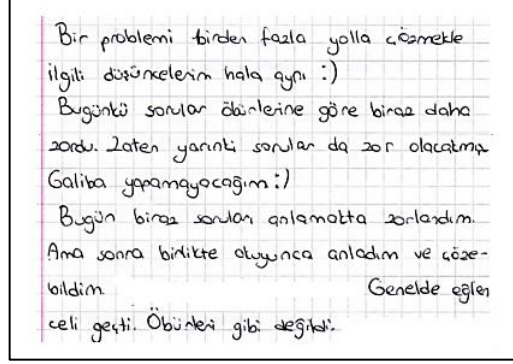 Bir problemi birden fazla yolla çözmekle
ilgili düşüncelerim hala aynı :)
Bugünkü sorular öbürlerine göre biraz daha
zordu. Zaten yarınki sorular da zor olacakmış
Galiba yapamayacağım :)
Bugün biraz soruları anlamakta zorlandım.
Ama sonra birlikte okuyunca anladım ve çöze-
bildim. Genelde eğlen
celi geçti. Öbürleri gibi değildi.